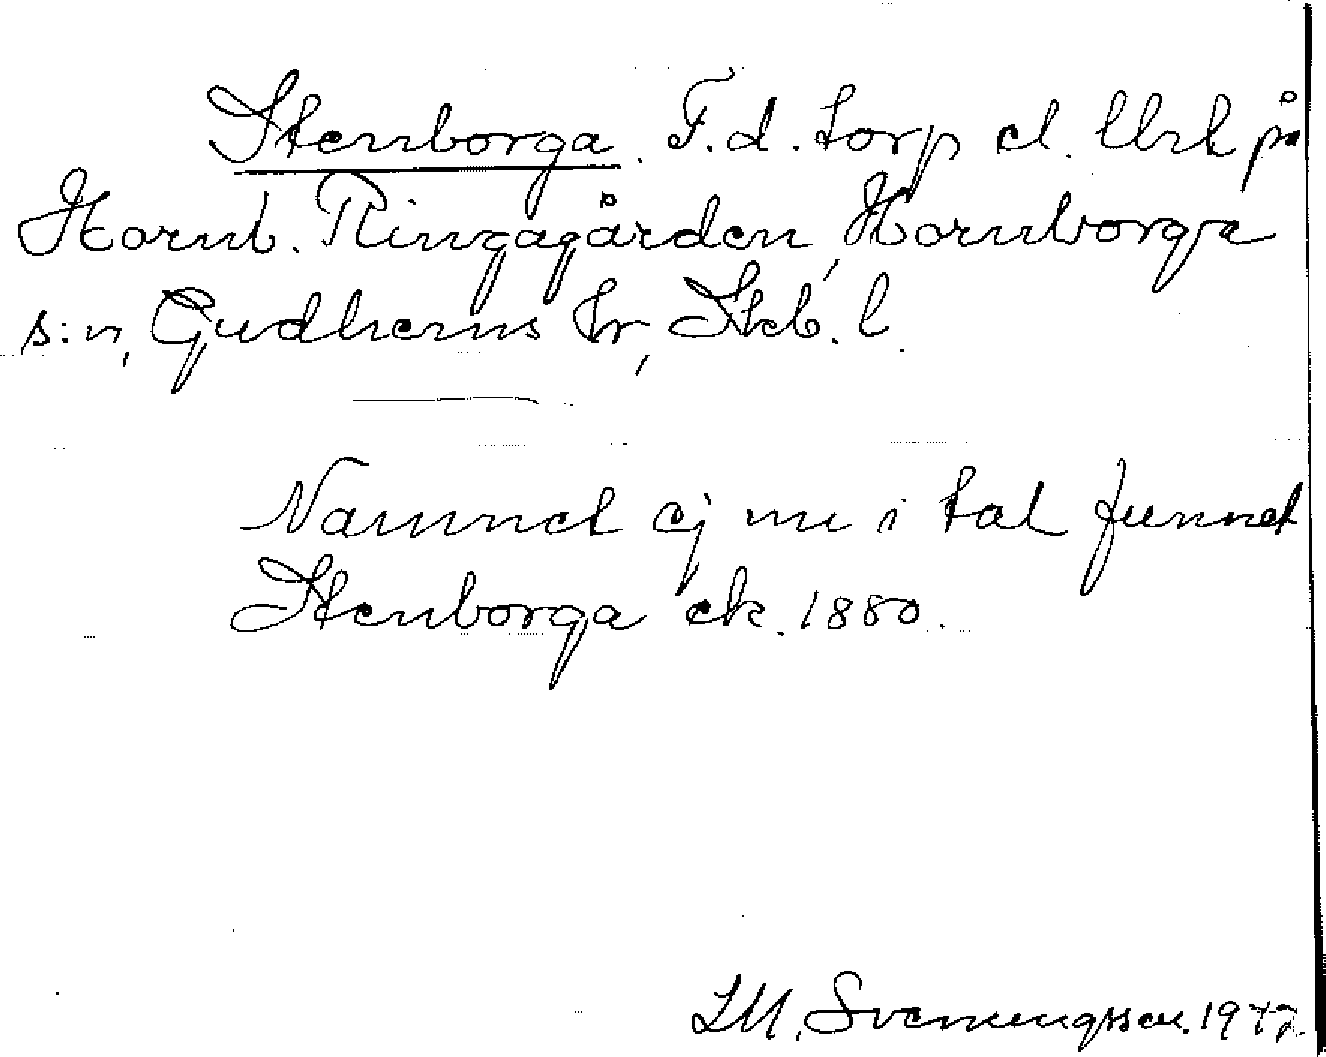 Stenborga. F.d. torp el. Urk på
Hornb. Ringagården, Hornborga
s:n, Gudhems hr, Skb. l.
Namnet ej nu i tal funnet
Stenborga ek. 1880.
Svenungsson. 1942.